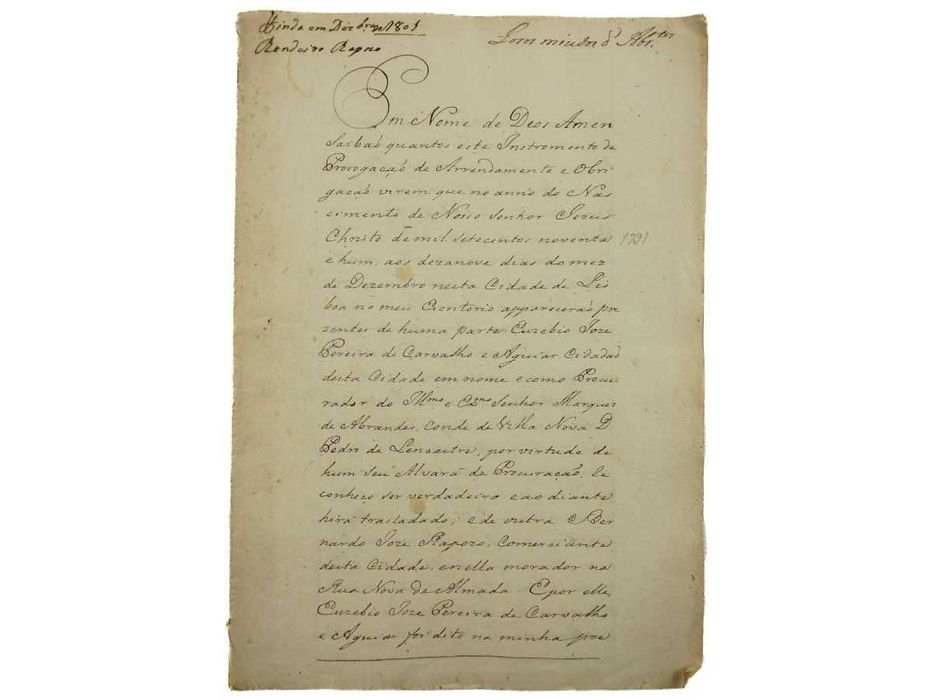 Finda em Dezbro de 1801
Rendeiro Rapozo
Foros miudos d' Abrtes
Em Nome de Deos Amen
Saibaõ quantos este Instromento de
Prorogaçaõ de Arrendamento e Obri
gaçaõ virem que no anno do Nas
cimento de Nosso Senhor Jezus
Christo de mil setecentos noventa
e hum, aos dezanove dias do mez
1791
de Dezembro nesta Cidade de Lis
boa no meu Escritorio appareceraõ pre
zentes de huma parte Euzebio Joze
Pereira de Carvalho e Aguiar Cidadaõ
desta Cidade em nome e como Procu
rador do Illmo e Exmo Senhor Marquez
de Abrantes, Conde de Villa Nova D.
Pedro de Lencastre, por virtude de
hum seu Alvará de Procuraçaõ, que
conheço ser verdadeiro e ao diante
hirá trasladado; e de outra Ber
nardo Joze Rapozo, Comerciante
desta Cidade, e nella morador na
Rua Nova de Almada E por elle
Euzebio Joze Pereira de Carvalho
e Aguiar foi dito na minha pre